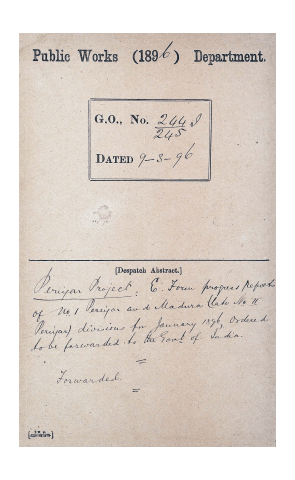 Public Works (1896) Department.
G.O., No. 244 I
245
DATED 9-3-96
[Despatch Abstract.]
Periyar Project: E. Form progress Reports
of No. 1 Periyar and Madura (late No. II
Periyar) divisions for January 1896, ordered
to be forwarded to the Govt of India.
Forwarded